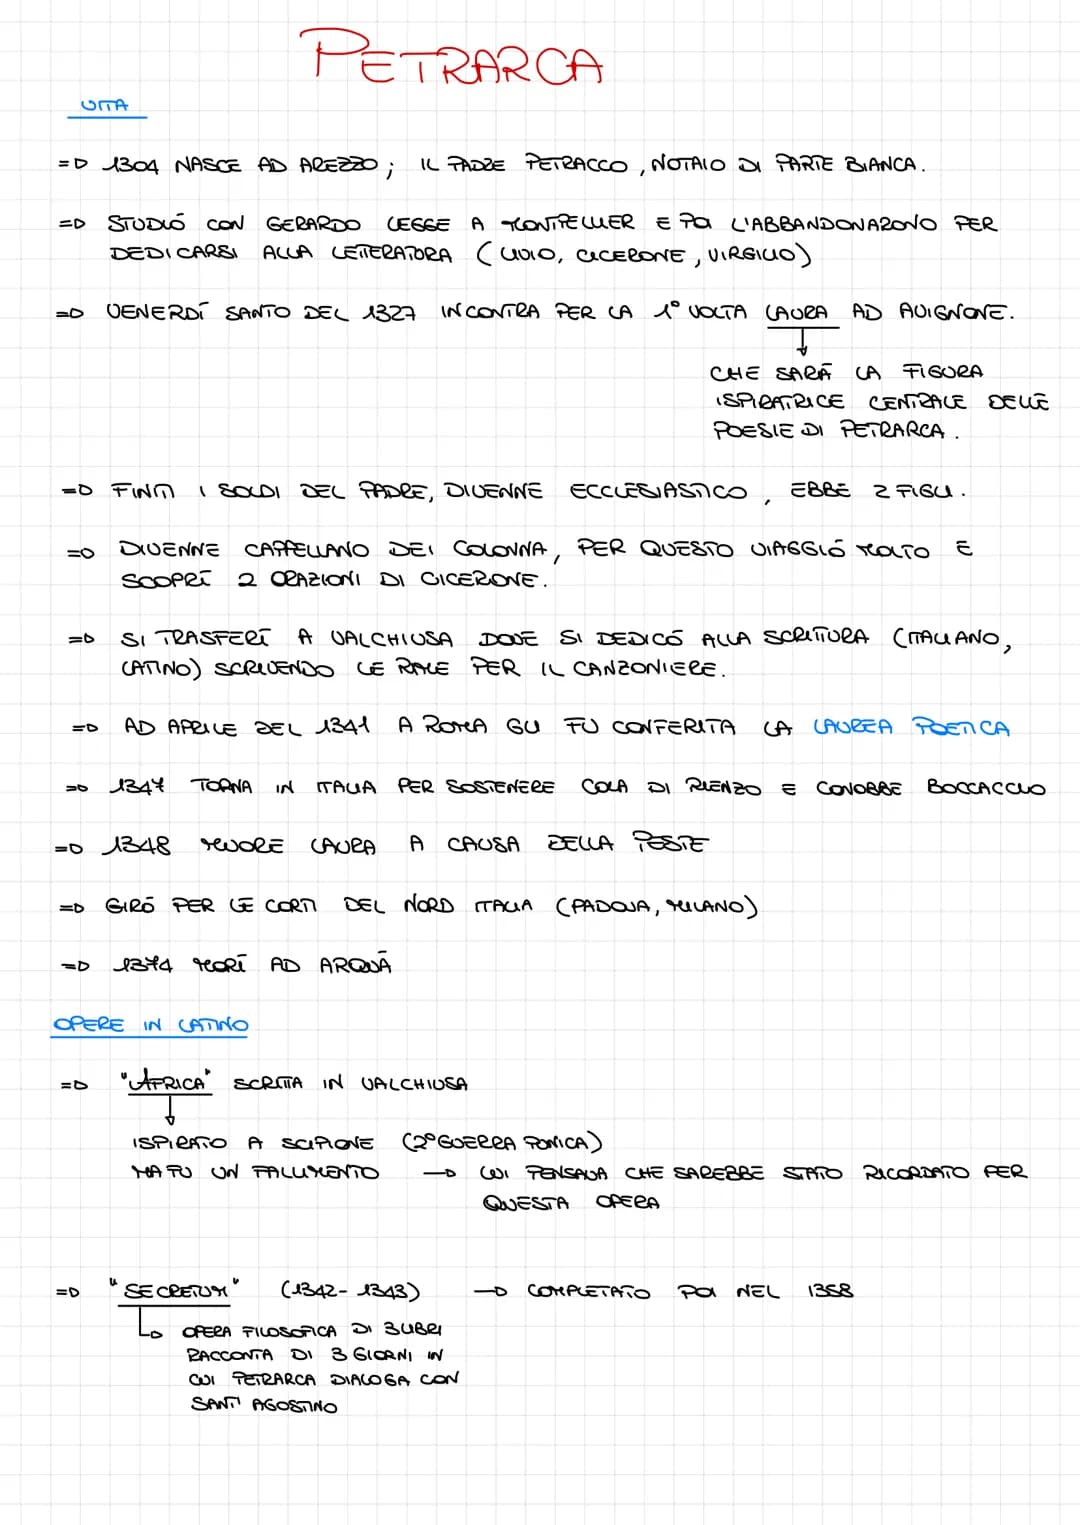 PETRARCA
VITA
=D 1304 NASCE AD AREZZO; IL PADRE PETRACCO, NOTAIO DI PARTE BIANCA.
=D STUDIÓ CON GERARDO LEGGE A MONTPELLIER E POI L'ABBANDONARONO PER
DEDICARSI ALLA LETTERATURA (LIVIO, CICERONE, VIRGILIO)
=D VENERDÍ SANTO DEL 1327 INCONTRA PER LA 1° VOLTA LAURA AD AVIGNONE.
CHE SARÁ LA FIGURA
ISPIRATRICE CENTRALE DELLE
POESIE DI PETRARCA.
=D FINITI I SOLDI DEL PADRE, DIVENNE ECCLESIASTICO, EBBE 2 FIGLI.
=D DIVENNE CAPPELLANO DEI COLONNA, PER QUESTO VIAGGIÓ MOLTO E
SCOPRÍ 2 ORAZIONI DI CICERONE.
=D SI TRASFERÍ A VALCHIUSA DOVE SI DEDICÓ ALLA SCRITTURA (ITALIANO,
LATINO) SCRIVENDO LE RALE PER IL CANZONIERE.
=D AD APRILE DEL 1341 A ROMA GLI FU CONFERITA LA LAUREA POETICA
=D 1347 TORNA IN ITALIA PER SOSTENERE COLA DI RIENZO E CONOBBE BOCCACCIO
=D 1348 MUORE LAURA A CAUSA DELLA PESTE
=D GIRÓ PER LE CORTI DEL NORD ITALIA (PADOVA, MILANO)
=D 1374 MORÍ AD ARQUÁ
OPERE IN LATINO
=D "L'AFRICA" SCRITTA IN VALCHIUSA
ISPIRATO A SCIPIONE (2° GUERRA PUNICA)
MA FU UN FALLIMENTO → LUI PENSAVA CHE SAREBBE STATO RICORDATO PER
QUESTA OPERA
=D "SECRETUM" (1342-1343) → COMPLETATO POI NEL 1358
OPERA FILOSOFICA DI 3 LIBRI
RACCONTA DI 3 GIORNI IN
CUI PETRARCA DIALOGA CON
SANT' AGOSTINO